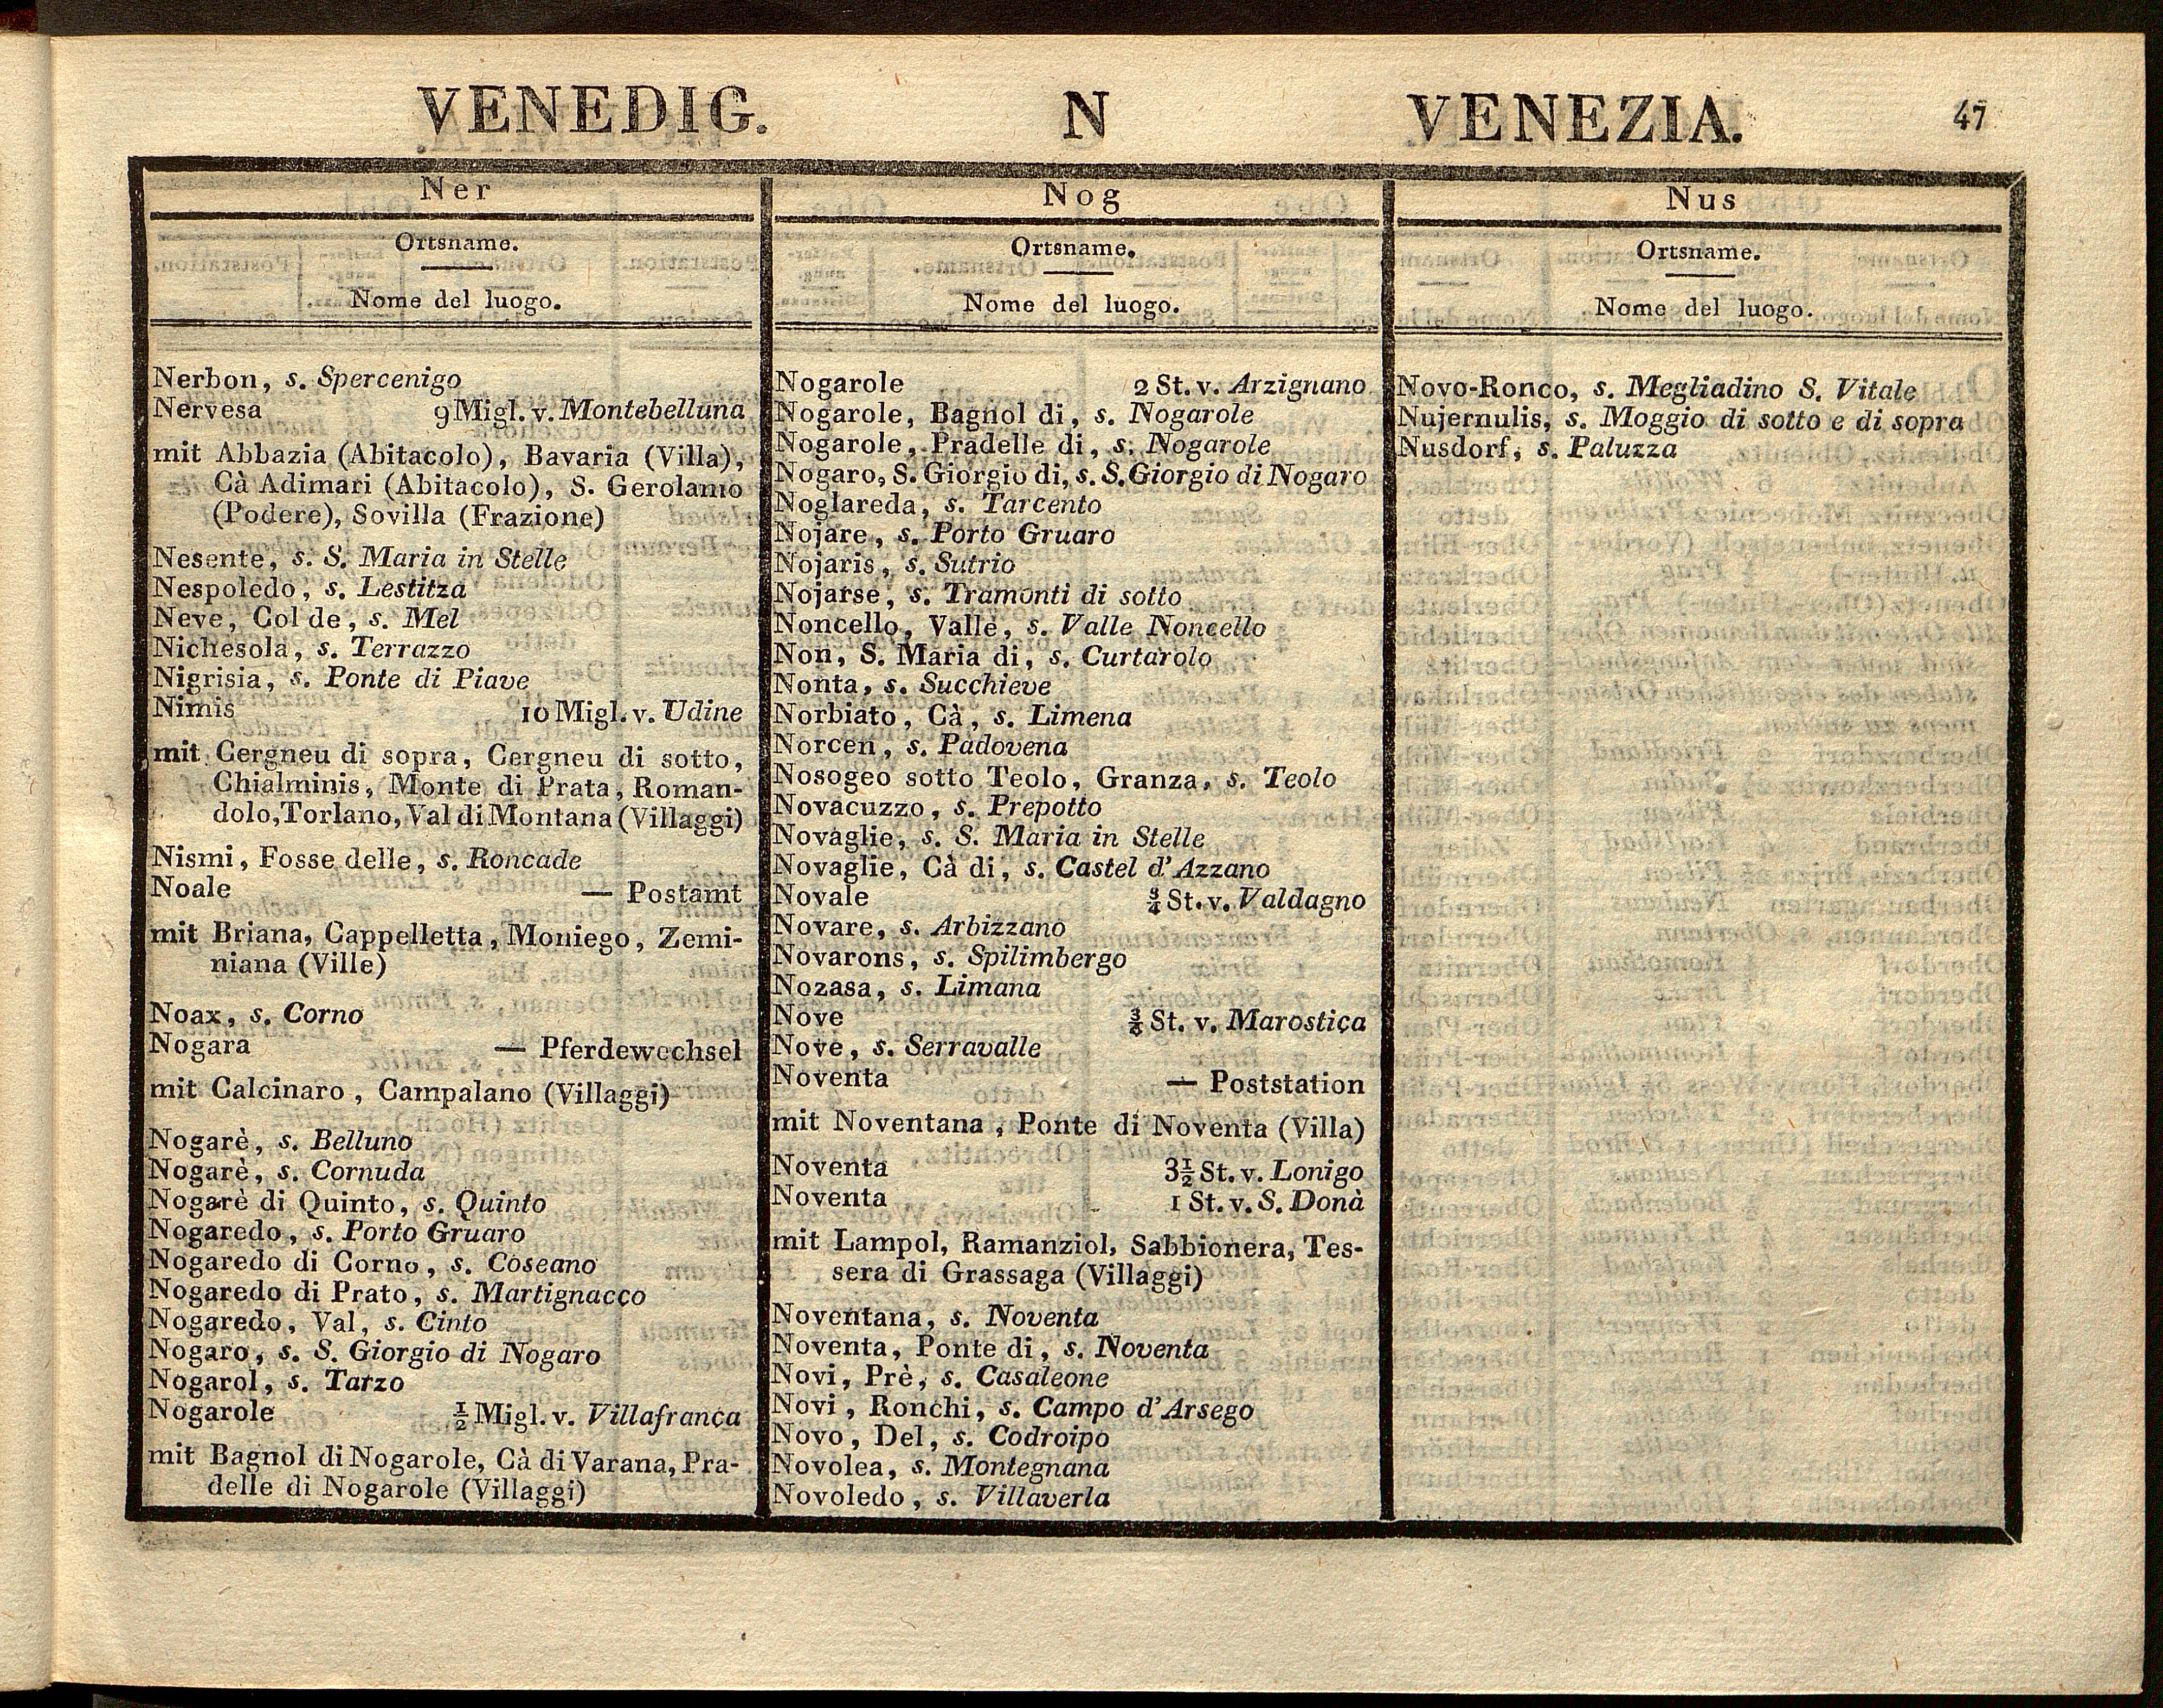 VENEDIG. N VENEZIA. 47
Ner
Ortsname.
Nome del luogo.
Nerbon, s. Spercenigo
Nervesa 9 Migl. v. Montebelluna
mit Abbazia (Abitacolo), Bavaria (Villa),
Cà Adimari (Abitacolo), S. Gerolamo
(Podere), Sovilla (Frazione)
Nesente, s. S. Maria in Stelle
Nespoledo, s. Lestitza
Neve, Col de, s. Mel
Nichesola, s. Terrazzo
Nigrisia, s. Ponte di Piave
Nimis 10 Migl. v. Udine
mit Cergneu di sopra, Cergneu di sotto,
Chialminis, Monte di Prata, Roman-
dolo, Torlano, Val di Montana (Villaggi)
Nismi, Fosse delle, s. Roncade
Noale — Postamt
mit Briana, Cappelletta, Moniego, Zemi-
niana (Ville)
Noax, s. Corno
Nogara — Pferdewechsel
mit Calcinaro, Campalano (Villaggi)
Nogarè, s. Belluno
Nogarè, s. Cornuda
Nogarè di Quinto, s. Quinto
Nogaredo, s. Porto Gruaro
Nogaredo di Corno, s. Coseano
Nogaredo di Prato, s. Martignacco
Nogaredo, Val, s. Cinto
Nogaro, s. S. Giorgio di Nogaro
Nogarol, s. Tarzo
Nogarole ½ Migl. v. Villafranca
mit Bagnol di Nogarole, Cà di Varana, Pra-
delle di Nogarole (Villaggi)
Nog
Ortsname.
Nome del luogo.
Nogarole 2 St. v. Arzignano
Nogarole, Bagnol di, s. Nogarole
Nogarole, Pradelle di, s. Nogarole
Nogaro, S. Giorgio di, s. S. Giorgio di Nogaro
Noglareda, s. Tarcento
Nojare, s. Porto Gruaro
Nojaris, s. Sutrio
Nojarse, s. Tramonti di sotto
Noncello, Valle, s. Valle Noncello
Non, S. Maria di, s. Curtarolo
Nonta, s. Succhieve
Norbiato, Cà, s. Limena
Norcen, s. Padovena
Nosogeo sotto Teolo, Granza, s. Teolo
Novacuzzo, s. Prepotto
Novaglie, s. S. Maria in Stelle
Novaglie, Cà di, s. Castel d'Azzano
Novale ¾ St. v. Valdagno
Novare, s. Arbizzano
Novarons, s. Spilimbergo
Nozasa, s. Limana
Nove St. v. Marostica
Nove, s. Serravalle
Noventa — Poststation
mit Noventana, Ponte di Noventa (Villa)
Noventa 3½ St. v. Lonigo
Noventa 1 St. v. S. Donà
mit Lampol, Ramanziol, Sabbionera, Tes-
sera di Grassaga (Villaggi)
Noventana, s. Noventa
Noventa, Ponte di, s. Noventa
Novi, Prè, s. Casaleone
Novi, Ronchi, s. Campo d'Arsego
Novo, Del, s. Codroipo
Novolea, s. Montegnana
Novoledo, s. Villaverla
Nus
Ortsname.
Nome del luogo.
Novo-Ronco, s. Megliadino S. Vitale
Nujernulis, s. Moggio di sotto e di sopra
Nusdorf, s. Paluzza